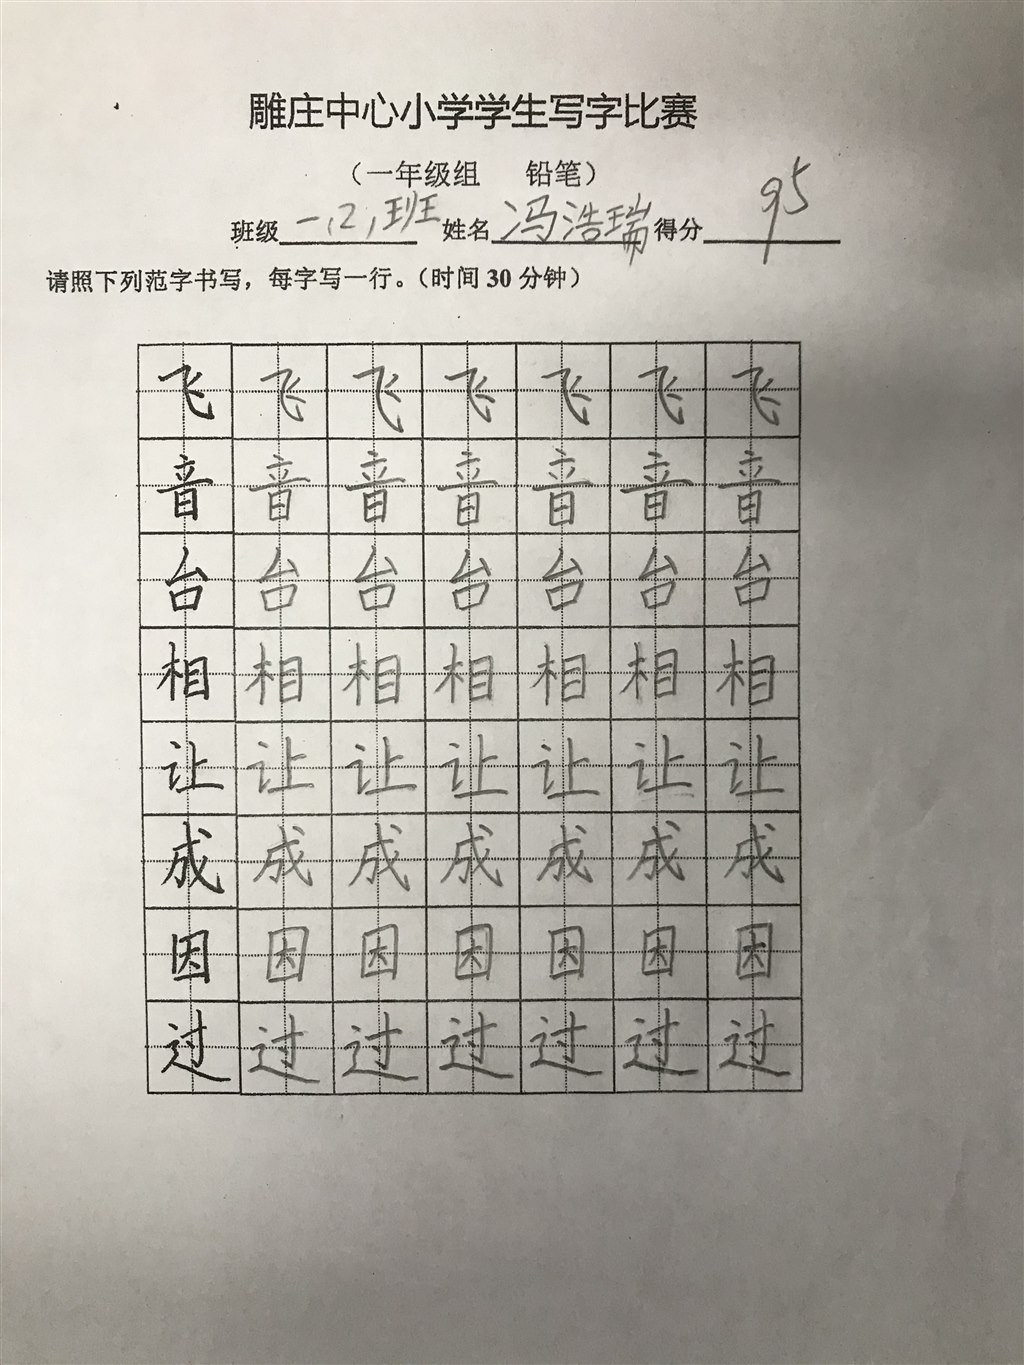 雕庄中心小学学生写字比赛
（一年级组 铅笔）
班级一,2,班 姓名冯浩瑞得分95
请照下列范字书写，每字写一行。（时间 30 分钟）
飞飞飞飞飞飞飞
音音音音音音音
台台台台台台台
相相相相相相相
让让让让让让让
成成成成成成成
因因因因因因因
过过过过过过过